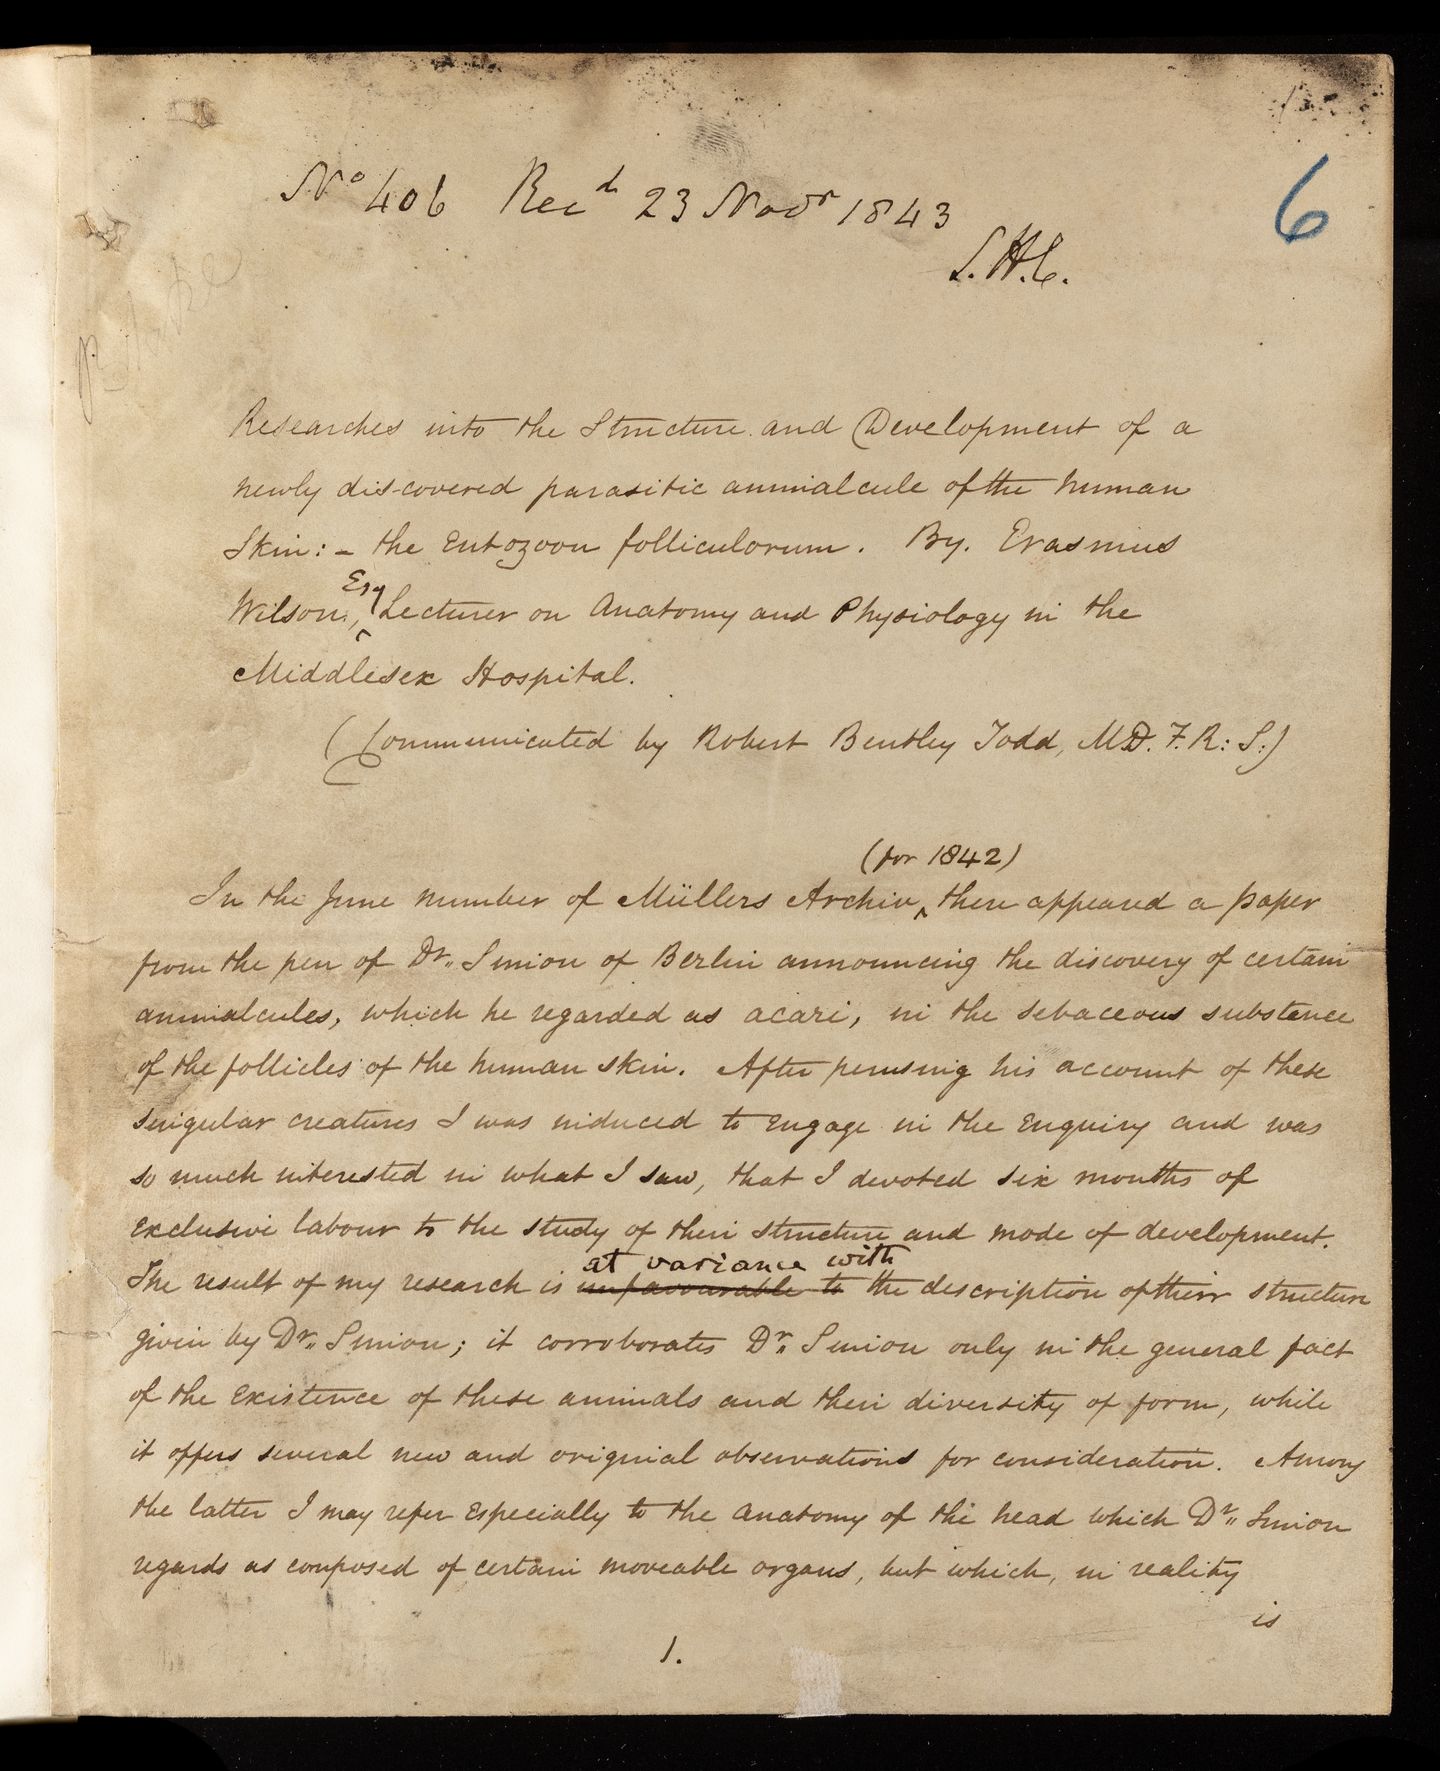 No 406 Recd 23 Novr 1843
6
S.H.C.
Researches into the Structure and Development of a
newly discovered parasitic animalcule of the human
Skin: – the Entozoon folliculorum. By. Erasmus
Esq
Wilson, Lecturer on Anatomy and Physiology in the
Middlesex Hospital.
(Communicated by Robert Bentley Todd, M.D. F.R.S.)
(for 1842)
In the June number of Müllers Archiv, there appeared a paper
from the pen of Dr. Simon of Berlin announcing the discovery of certain
animalcules, which he regarded as acari, in the sebaceous substance
of the follicles of the human skin. After perusing his account of these
singular creatures I was induced to engage in the enquiry and was
so much interested in what I saw, that I devoted six months of
exclusive labour to the study of their structure and mode of development.
at variance with
The result of my research is unfavourable to the description of their structure
given by Dr. Simon; it corroborates Dr. Simon only in the general fact
of the existence of these animals and their diversity of form, while
it offers several new and original observations for consideration. Among
the latter I may refer especially to the anatomy of the head which Dr. Simon
regards as composed of certain moveable organs, but which, in reality
is
1.